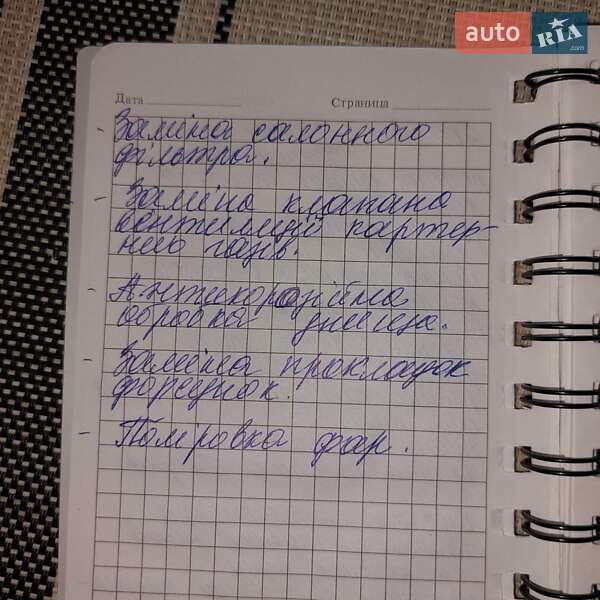 auto RIA.com
Дата Страница
- Заміна салонного
фільтра.
- Заміна клапана
вентиляції картер-
них газів.
- Антикорозійна
обробка днища.
- Заміна прокладок
форсунок.
- Поліровка фар.